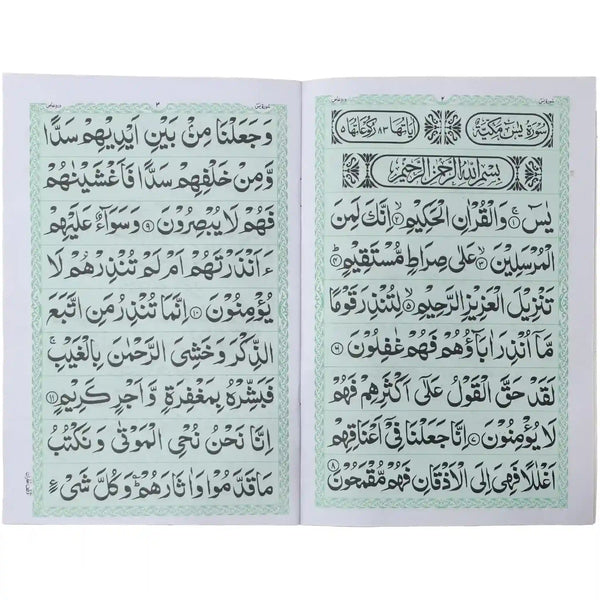 سُوْرَةُ يٰسٓ مَكِّيَّةٌ اٰيَاتُهَا ٨٣ رُكُوْعَاتُهَا ٥
بِسْمِ اللّٰهِ الرَّحْمٰنِ الرَّحِيْمِ
يٰسٓ ۚ‏﴿١﴾ وَالْقُرْاٰنِ الْحَكِيْمِ ۙ‏﴿٢﴾ اِنَّكَ لَمِنَ
الْمُرْسَلِيْنَ ۙ‏﴿٣﴾ عَلٰى صِرَاطٍ مُّسْتَقِيْمٍ ؕ‏﴿٤﴾
تَنْزِيْلَ الْعَزِيْزِ الرَّحِيْمِ ۙ‏﴿٥﴾ لِتُنْذِرَ قَوْمًا
مَّاۤ اُنْذِرَ اٰبَآؤُهُمْ فَهُمْ غٰفِلُوْنَ‏﴿٦﴾
لَقَدْ حَقَّ الْقَوْلُ عَلٰٓى اَكْثَرِهِمْ فَهُمْ
لَا يُؤْمِنُوْنَ‏﴿٧﴾ اِنَّا جَعَلْنَا فِيْۤ اَعْنَاقِهِمْ
اَغْلٰلًا فَهِىَ اِلَى الْاَذْقَانِ فَهُمْ مُّقْمَحُوْنَ‏﴿٨﴾
٣
وَجَعَلْنَا مِنْۢ بَيْنِ اَيْدِيْهِمْ سَدًّا
وَّمِنْ خَلْفِهِمْ سَدًّا فَاَغْشَيْنٰهُمْ
فَهُمْ لَا يُبْصِرُوْنَ‏﴿٩﴾ وَسَوَآءٌ عَلَيْهِمْ
ءَاَنْذَرْتَهُمْ اَمْ لَمْ تُنْذِرْهُمْ لَا
يُؤْمِنُوْنَ‏﴿١٠﴾ اِنَّمَا تُنْذِرُ مَنِ اتَّبَعَ
الذِّكْرَ وَخَشِىَ الرَّحْمٰنَ بِالْغَيْبِ ۚ
فَبَشِّرْهُ بِمَغْفِرَةٍ وَّاَجْرٍ كَرِيْمٍ‏﴿١١﴾
اِنَّا نَحْنُ نُحْىِ الْمَوْتٰى وَنَكْتُبُ
مَا قَدَّمُوْا وَاٰثَارَهُمْ ؕ وَكُلَّ شَىْءٍ